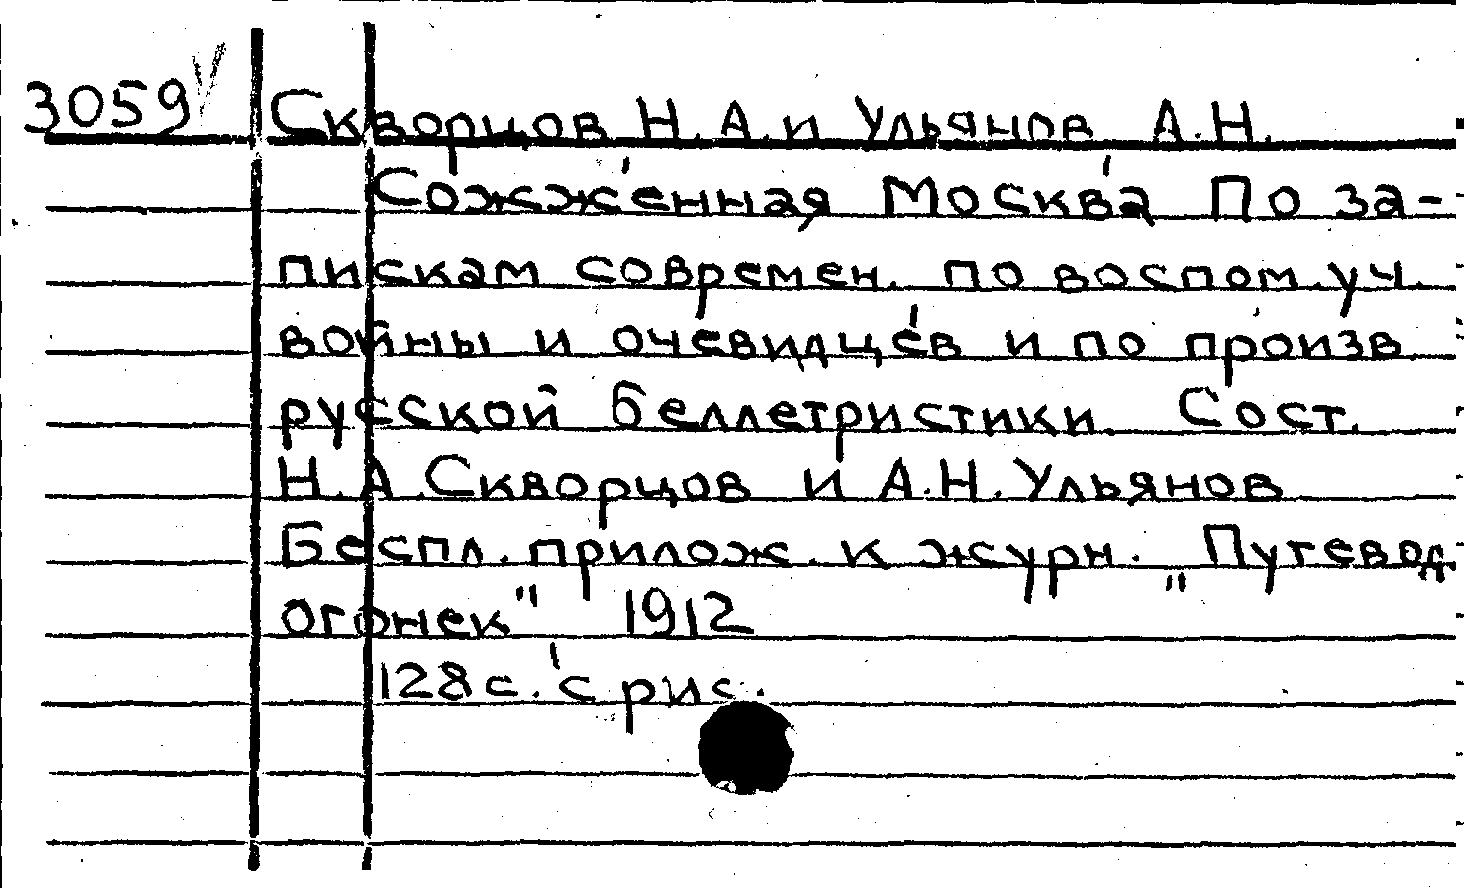 3059 Скворцов Н.А. и Ульянов А.Н.
Сожженная Москва По за-
пискам современ. по воспом. уч.
войны и очевидцев и по произв
русской беллетристики. Сост.
Н.А. Скворцов и А.Н. Ульянов
Беспл. прилож. к журн. "Путевод
огонек" 1912
128 с. с рис.